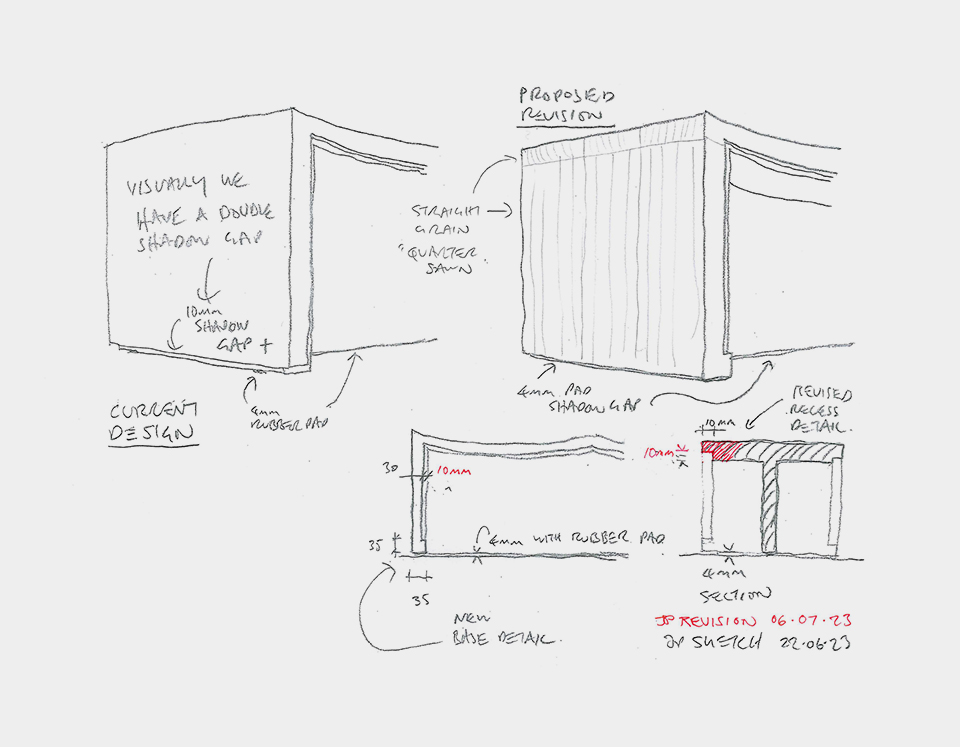 VISUALLY WE
HAVE A DOUBLE
SHADOW GAP
10mm
SHADOW
GAP +
4mm
RUBBER PAD
CURRENT
DESIGN
PROPOSED
REVISION
STRAIGHT
GRAIN
"QUARTER
SAWN
4mm PAD
SHADOW GAP
REVISED
RECESS
DETAIL.
10mm
10mm
30
10mm
35
35
4mm WITH RUBBER PAD
NEW
BASE DETAIL.
4mm
SECTION
JP REVISION 06.07.23
JP SKETCH 22.06.23